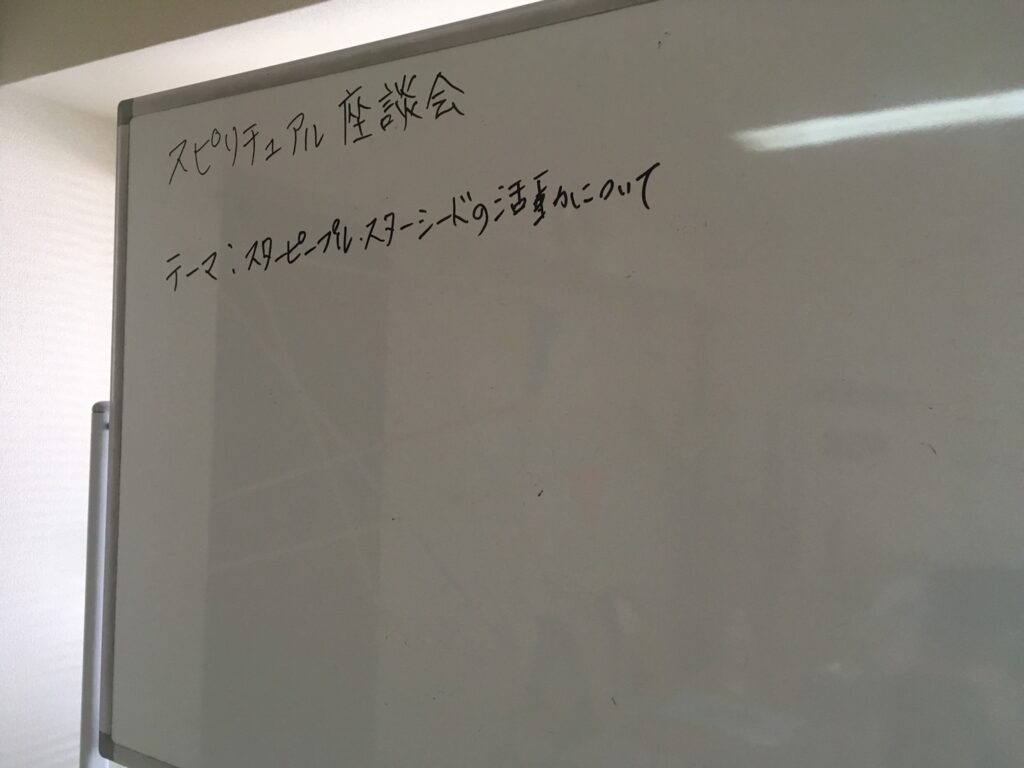 スピリチュアル座談会
テーマ:スターピープル・スターシードの活動について